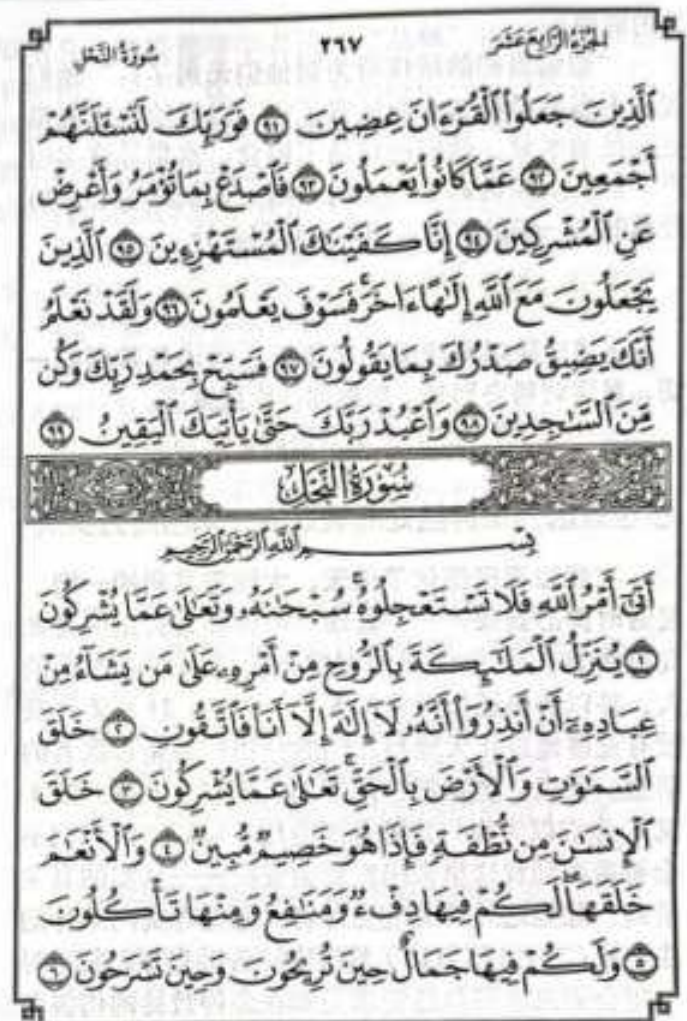 الجزء الرابع عشر ٢٦٧ سورة النحل
ٱلَّذِينَ جَعَلُوا۟ ٱلْقُرْءَانَ عِضِينَ ٩١ فَوَرَبِّكَ لَنَسْـَٔلَنَّهُمْ
أَجْمَعِينَ ٩٢ عَمَّا كَانُوا۟ يَعْمَلُونَ ٩٣ فَٱصْدَعْ بِمَا تُؤْمَرُ وَأَعْرِضْ
عَنِ ٱلْمُشْرِكِينَ ٩٤ إِنَّا كَفَيْنَـٰكَ ٱلْمُسْتَهْزِءِينَ ٩٥ ٱلَّذِينَ
يَجْعَلُونَ مَعَ ٱللَّهِ إِلَـٰهًا ءَاخَرَ ۚ فَسَوْفَ يَعْلَمُونَ ٩٦ وَلَقَدْ نَعْلَمُ
أَنَّكَ يَضِيقُ صَدْرُكَ بِمَا يَقُولُونَ ٩٧ فَسَبِّحْ بِحَمْدِ رَبِّكَ وَكُن
مِّنَ ٱلسَّـٰجِدِينَ ٩٨ وَٱعْبُدْ رَبَّكَ حَتَّىٰ يَأْتِيَكَ ٱلْيَقِينُ ٩٩
سُورَةُ النَّحْلِ
بِسْمِ ٱللَّهِ ٱلرَّحْمَـٰنِ ٱلرَّحِيمِ
أَتَىٰٓ أَمْرُ ٱللَّهِ فَلَا تَسْتَعْجِلُوهُ ۚ سُبْحَـٰنَهُۥ وَتَعَـٰلَىٰ عَمَّا يُشْرِكُونَ
١ يُنَزِّلُ ٱلْمَلَـٰٓئِكَةَ بِٱلرُّوحِ مِنْ أَمْرِهِۦ عَلَىٰ مَن يَشَآءُ مِنْ
عِبَادِهِۦٓ أَنْ أَنذِرُوٓا۟ أَنَّهُۥ لَآ إِلَـٰهَ إِلَّآ أَنَا۠ فَٱتَّقُونِ ٢ خَلَقَ
ٱلسَّمَـٰوَٰتِ وَٱلْأَرْضَ بِٱلْحَقِّ ۚ تَعَـٰلَىٰ عَمَّا يُشْرِكُونَ ٣ خَلَقَ
ٱلْإِنسَـٰنَ مِن نُّطْفَةٍ فَإِذَا هُوَ خَصِيمٌ مُّبِينٌ ٤ وَٱلْأَنْعَـٰمَ
خَلَقَهَا ۗ لَكُمْ فِيهَا دِفْءٌ وَمَنَـٰفِعُ وَمِنْهَا تَأْكُلُونَ
٥ وَلَكُمْ فِيهَا جَمَالٌ حِينَ تُرِيحُونَ وَحِينَ تَسْرَحُونَ ٦